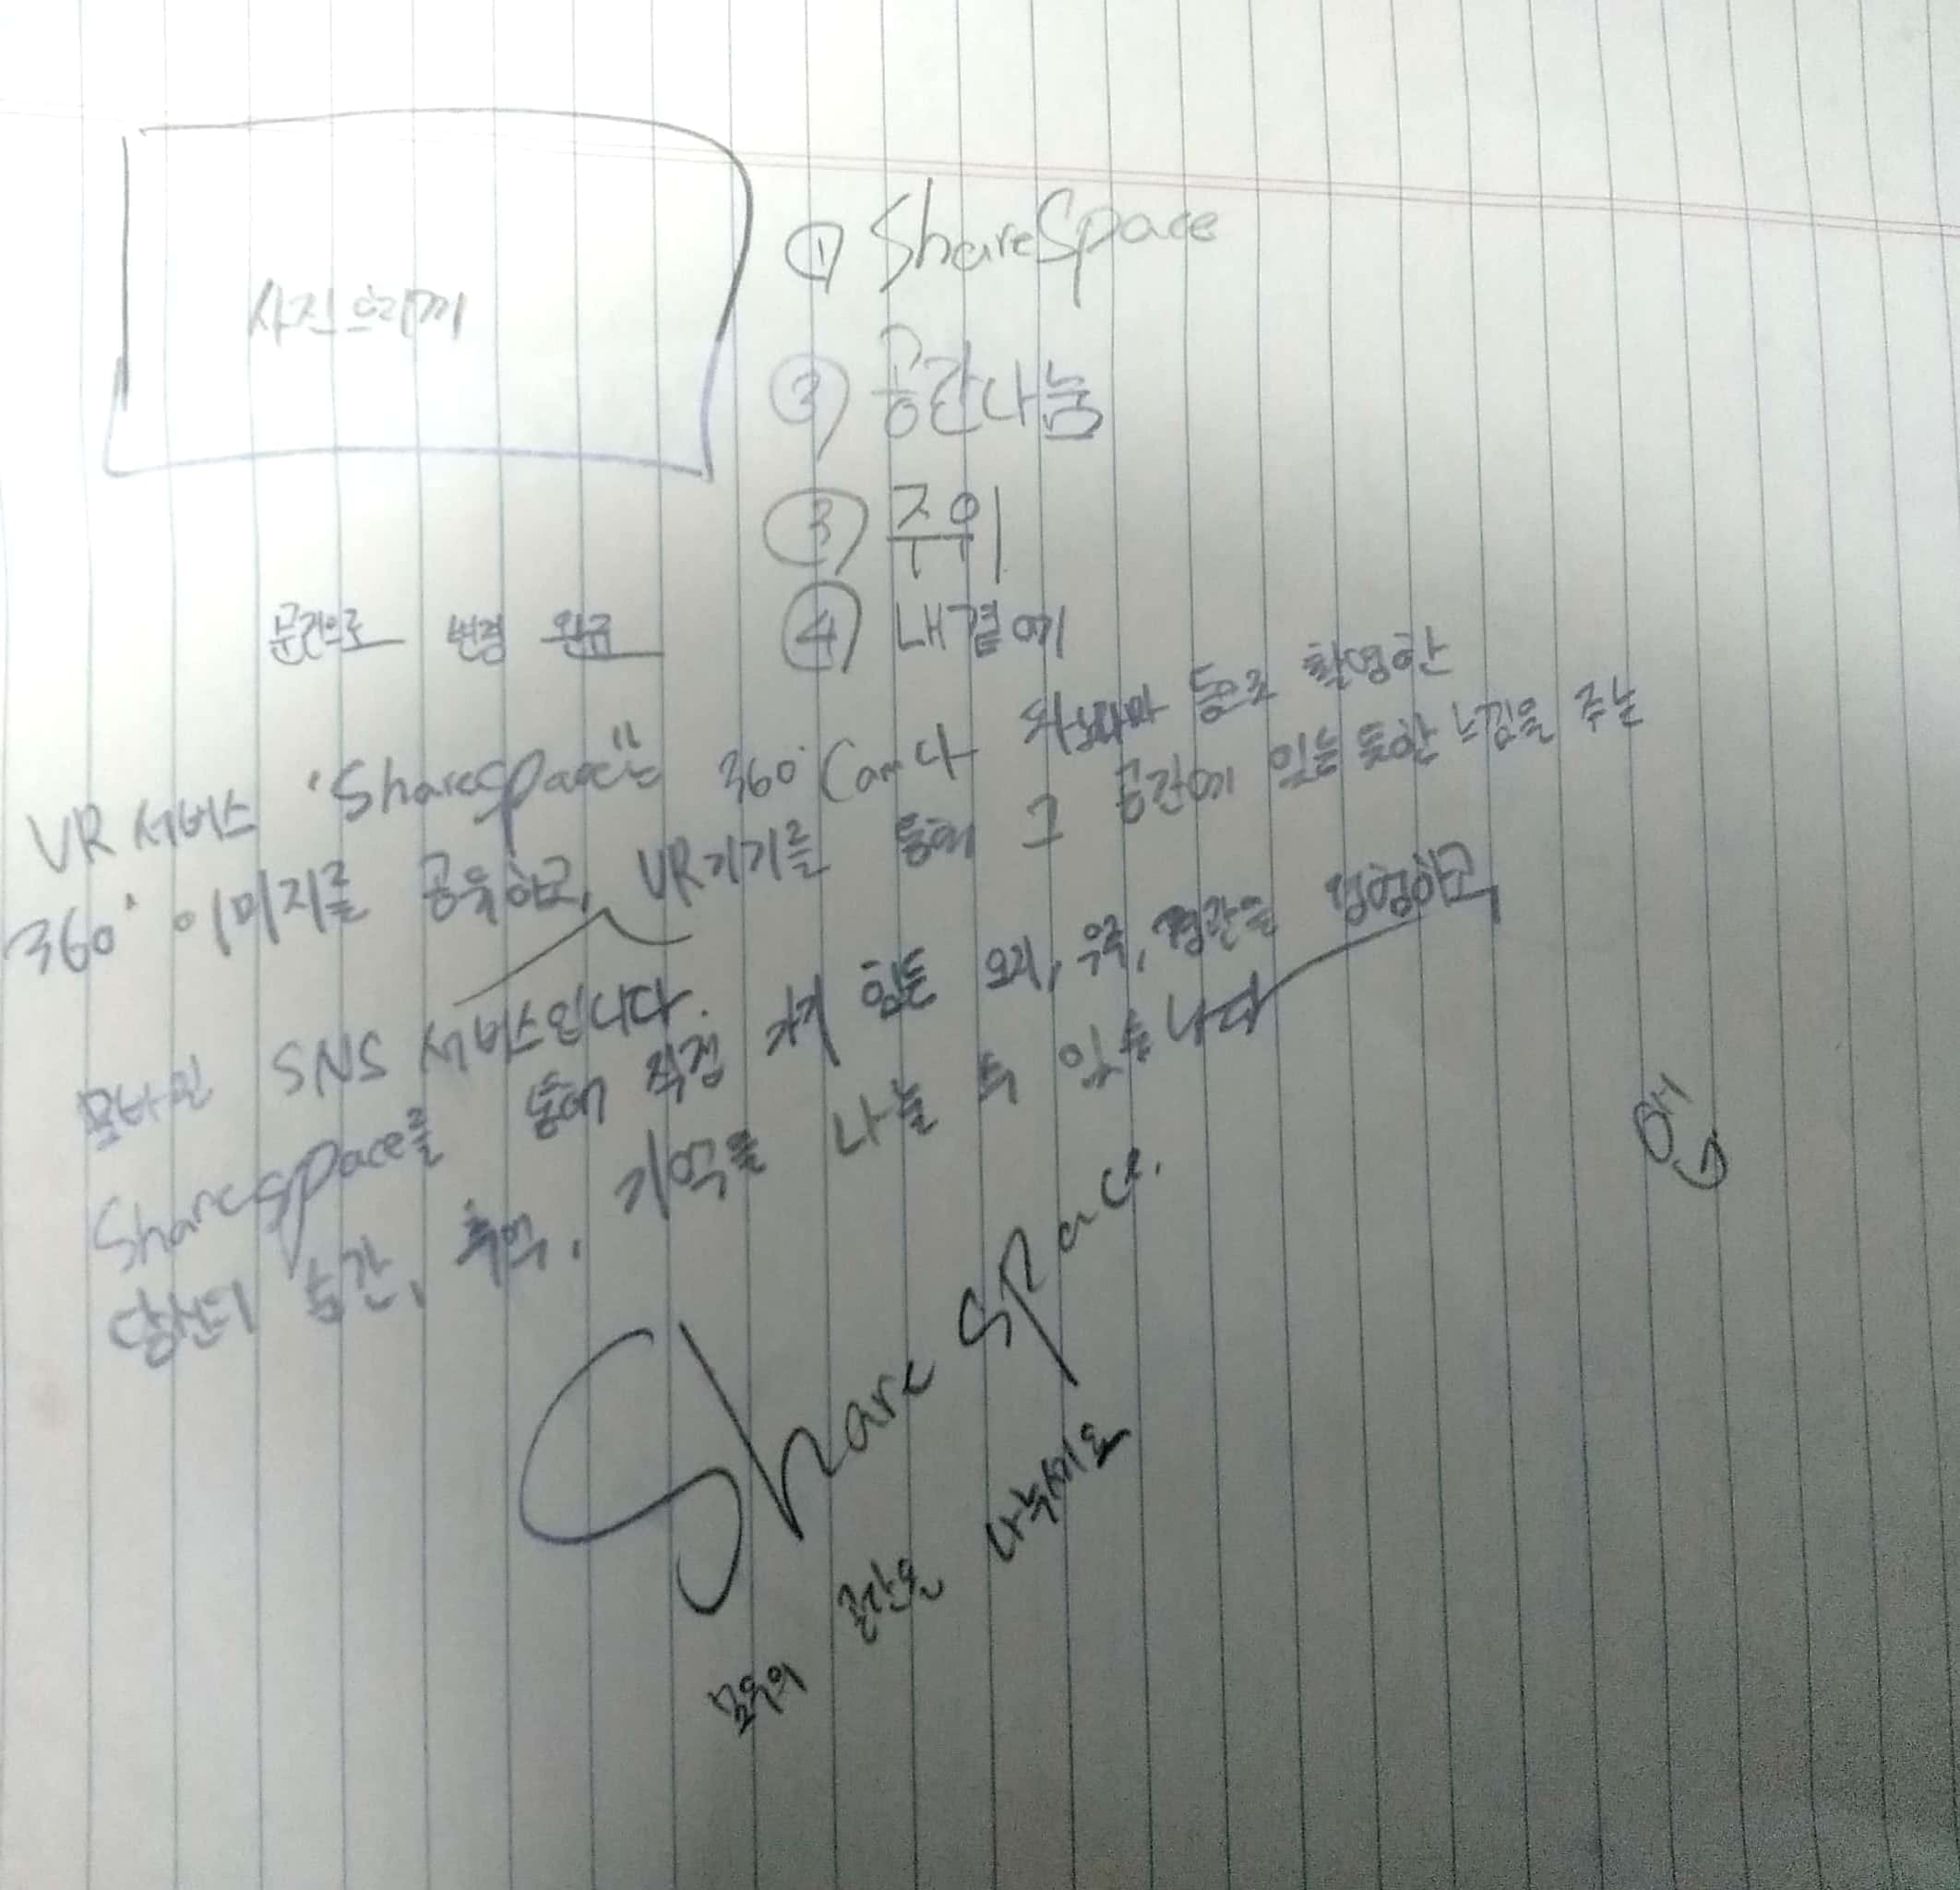 ① ShareSpace
② 공간나눔
③ 주위
④ 내곁에
문건으로 변경 완료
VR 서비스 'ShareSpace"는 360° Cam나 파노라마 등으로 촬영한
360° 이미지를 공유하고, VR기기를 통해 그 공간에 있는 듯한 느낌을 주는
모바일 SNS 서비스입니다.
Sharespace를 통해 직접 가기 힘든 오지, 우주, 경관을 경험하고,
당신의 순간, 추억, 기억을 나눌 수 있습니다
Share space.
모두의 공간을 나누세요